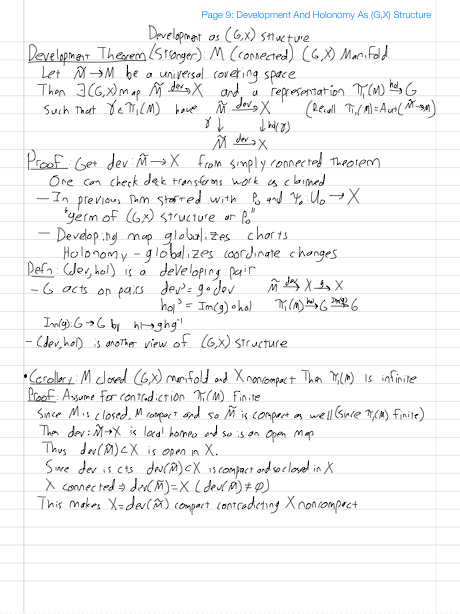 Page 9: Development And Holonomy As (G,X) Structure
Development as (G,X) structure
Development Theorem (Stronger): M (connected) (G,X) Manifold
Let M̃→M be a universal covering space
Then ∃(G,X) map M̃ dev→ X and a representation π₁(M) hol→ G
Such that γ∈π₁(M) have M̃ dev→ X (Recall π₁(M)=Aut(M̃→M))
γ↓ ↓hol(γ)
M̃ dev→ X
Proof: Get dev: M̃→X from simply connected Theorem
One can check deck transforms work as claimed
- In previous thm started with P₀ and Ψ₀: U₀ → X
"germ of (G,X) structure at P₀"
- Developing map globalizes charts
Holonomy - globalizes coordinate changes
Defn: (dev, hol) is a developing pair
- G acts on pairs dev' = g∘dev M̃ dev→ X g→ X
hol' = Inn(g)∘hol π₁(M) hol→ G Inn(g)→ G
Inn(g): G→G by h↦ghg⁻¹
- (dev, hol) is another view of (G,X) structure
• Corollary: M closed (G,X) manifold and X noncompact Then π₁(M) is infinite
Proof: Assume for contradiction π₁(M) finite
Since M is closed, M compact and so M̃ is compact as well (since π₁(M) finite)
Then dev: M̃→X is local homeo and so is an open map
Thus dev(M̃)⊂X is open in X.
Since dev is cts dev(M̃)⊂X is compact and so closed in X
X connected ⇒ dev(M̃)=X (dev(M̃)≠∅)
This makes X=dev(M̃) compact contradicting X noncompact